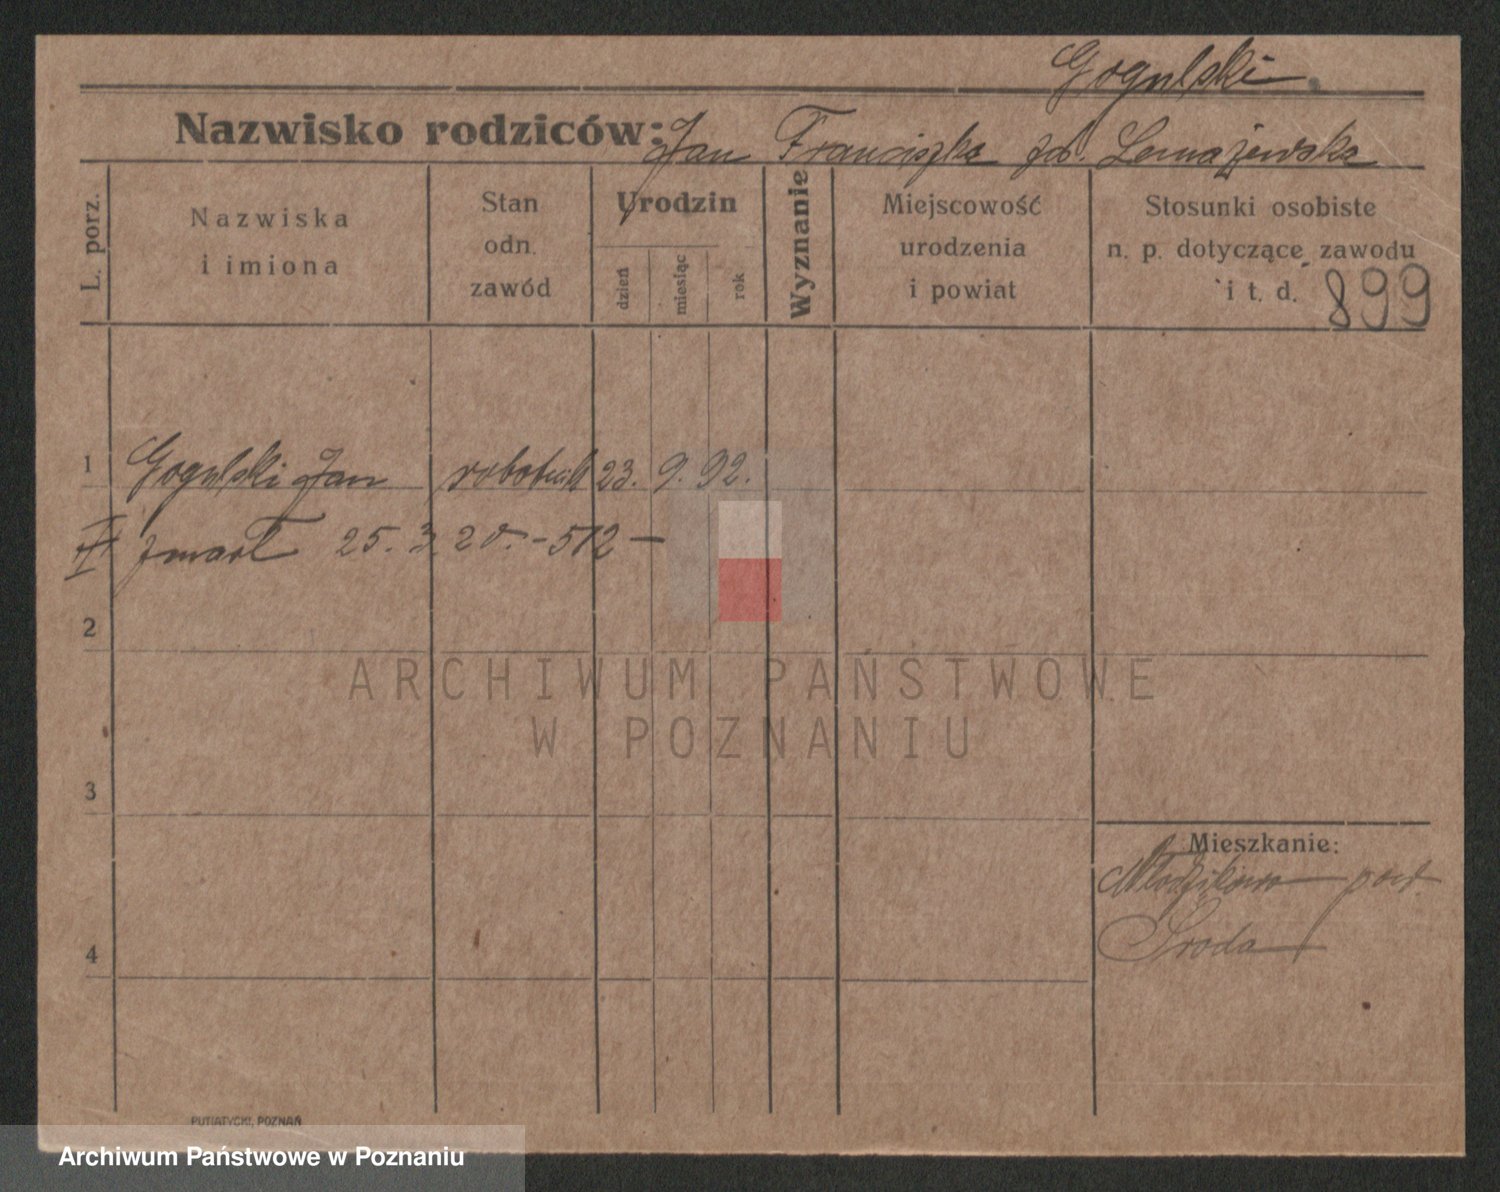 Gogulski
Nazwisko rodziców: Jan Franciszka zd.
L. porz.
Nazwiska
i imiona
Stan
odn.
zawód
Urodzin
dzień
miesiąc
rok
Wyznanie
Miejscowość
urodzenia
i powiat
Stosunki osobiste
n. p. dotyczące zawodu
i t. d. 899
1 Gogulski Jan robotnik 23. 9. 92.
zmarł 25. 3. 20. - 512 -
2
ARCHIWUM PAŃSTWOWE
W POZNANIU
3
Mieszkanie:
Młodzikowo pow.
Środa
4
PUTIATYCKI, POZNAŃ
Archiwum Państwowe w Poznaniu